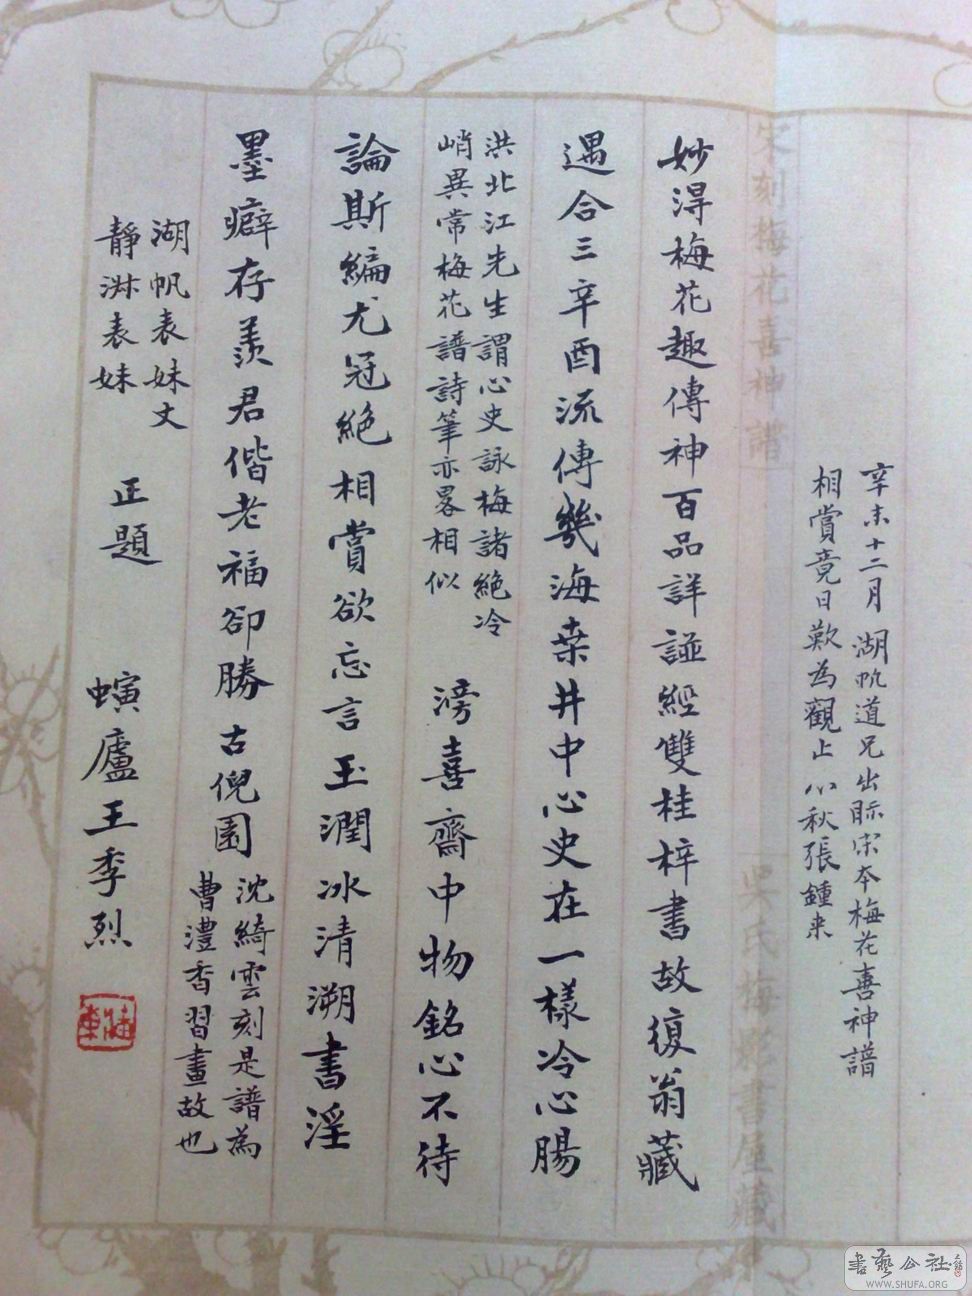 辛未十二月湖帆道兄出眎宋本梅花喜神譜
相賞竟日歎為觀止心秋張鍾来
宋刻梅花喜神譜
吳氏梅影書屋藏
妙淂梅花趣傳神百品詳諩經雙桂梓書故復翁藏
遇合三辛酉流傳幾海桒井中心史在一樣冷心腸
洪北江先生謂心史詠梅諸絶冷
峭異常梅花譜詩筆亦畧相似
滂喜齋中物銘心不待
論斯編尤冠絶相賞欲忘言玉潤冰清溯書淫
墨癖存羨君偕老福卻勝古倪園
沈綺雲刻是譜為
曹澧香習畫故也
湖帆表妹丈
靜淑表妹
正題
螾廬王季烈
書藝公社
WWW.SHUFA.ORG